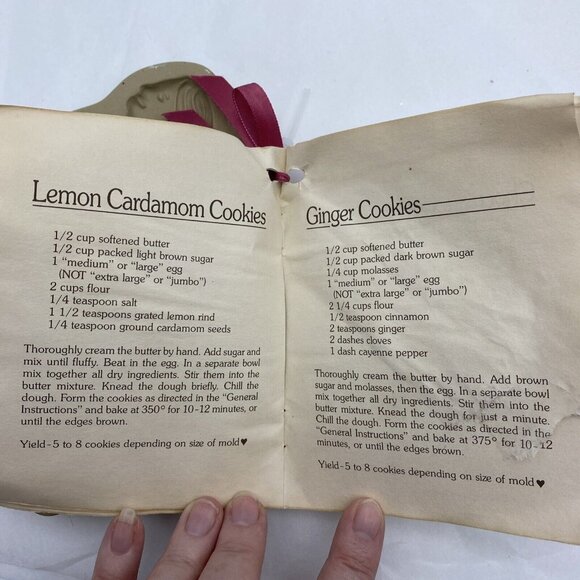 Lemon Cardamom Cookies
1/2 cup softened butter
1/2 cup packed light brown sugar
1 "medium" or "large" egg
(NOT "extra large" or "jumbo")
2 cups flour
1/4 teaspoon salt
1 1/2 teaspoons grated lemon rind
1/4 teaspoon ground cardamom seeds
Thoroughly cream the butter by hand. Add sugar and
mix until fluffy. Beat in the egg. In a separate bowl
mix together all dry ingredients. Stir them into the
butter mixture. Knead the dough briefly. Chill the
dough. Form the cookies as directed in the "General
Instructions" and bake at 350° for 10-12 minutes, or
until the edges brown.
Yield-5 to 8 cookies depending on size of mold♥
Ginger Cookies
1/2 cup softened butter
1/2 cup packed dark brown sugar
1/4 cup molasses
1 "medium" or "large" egg
(NOT "extra large" or "jumbo")
2 1/4 cups flour
1/2 teaspoon cinnamon
2 teaspoons ginger
2 dashes cloves
1 dash cayenne pepper
Thoroughly cream the butter by hand. Add brown
sugar and molasses, then the egg. In a separate bowl
mix together all dry ingredients. Stir them into the
butter mixture. Knead the dough for just a minute.
Chill the dough. Form the cookies as directed in the
"General Instructions" and bake at 375° for 10-12
minutes, or until the edges brown.
Yield-5 to 8 cookies depending on size of mold♥